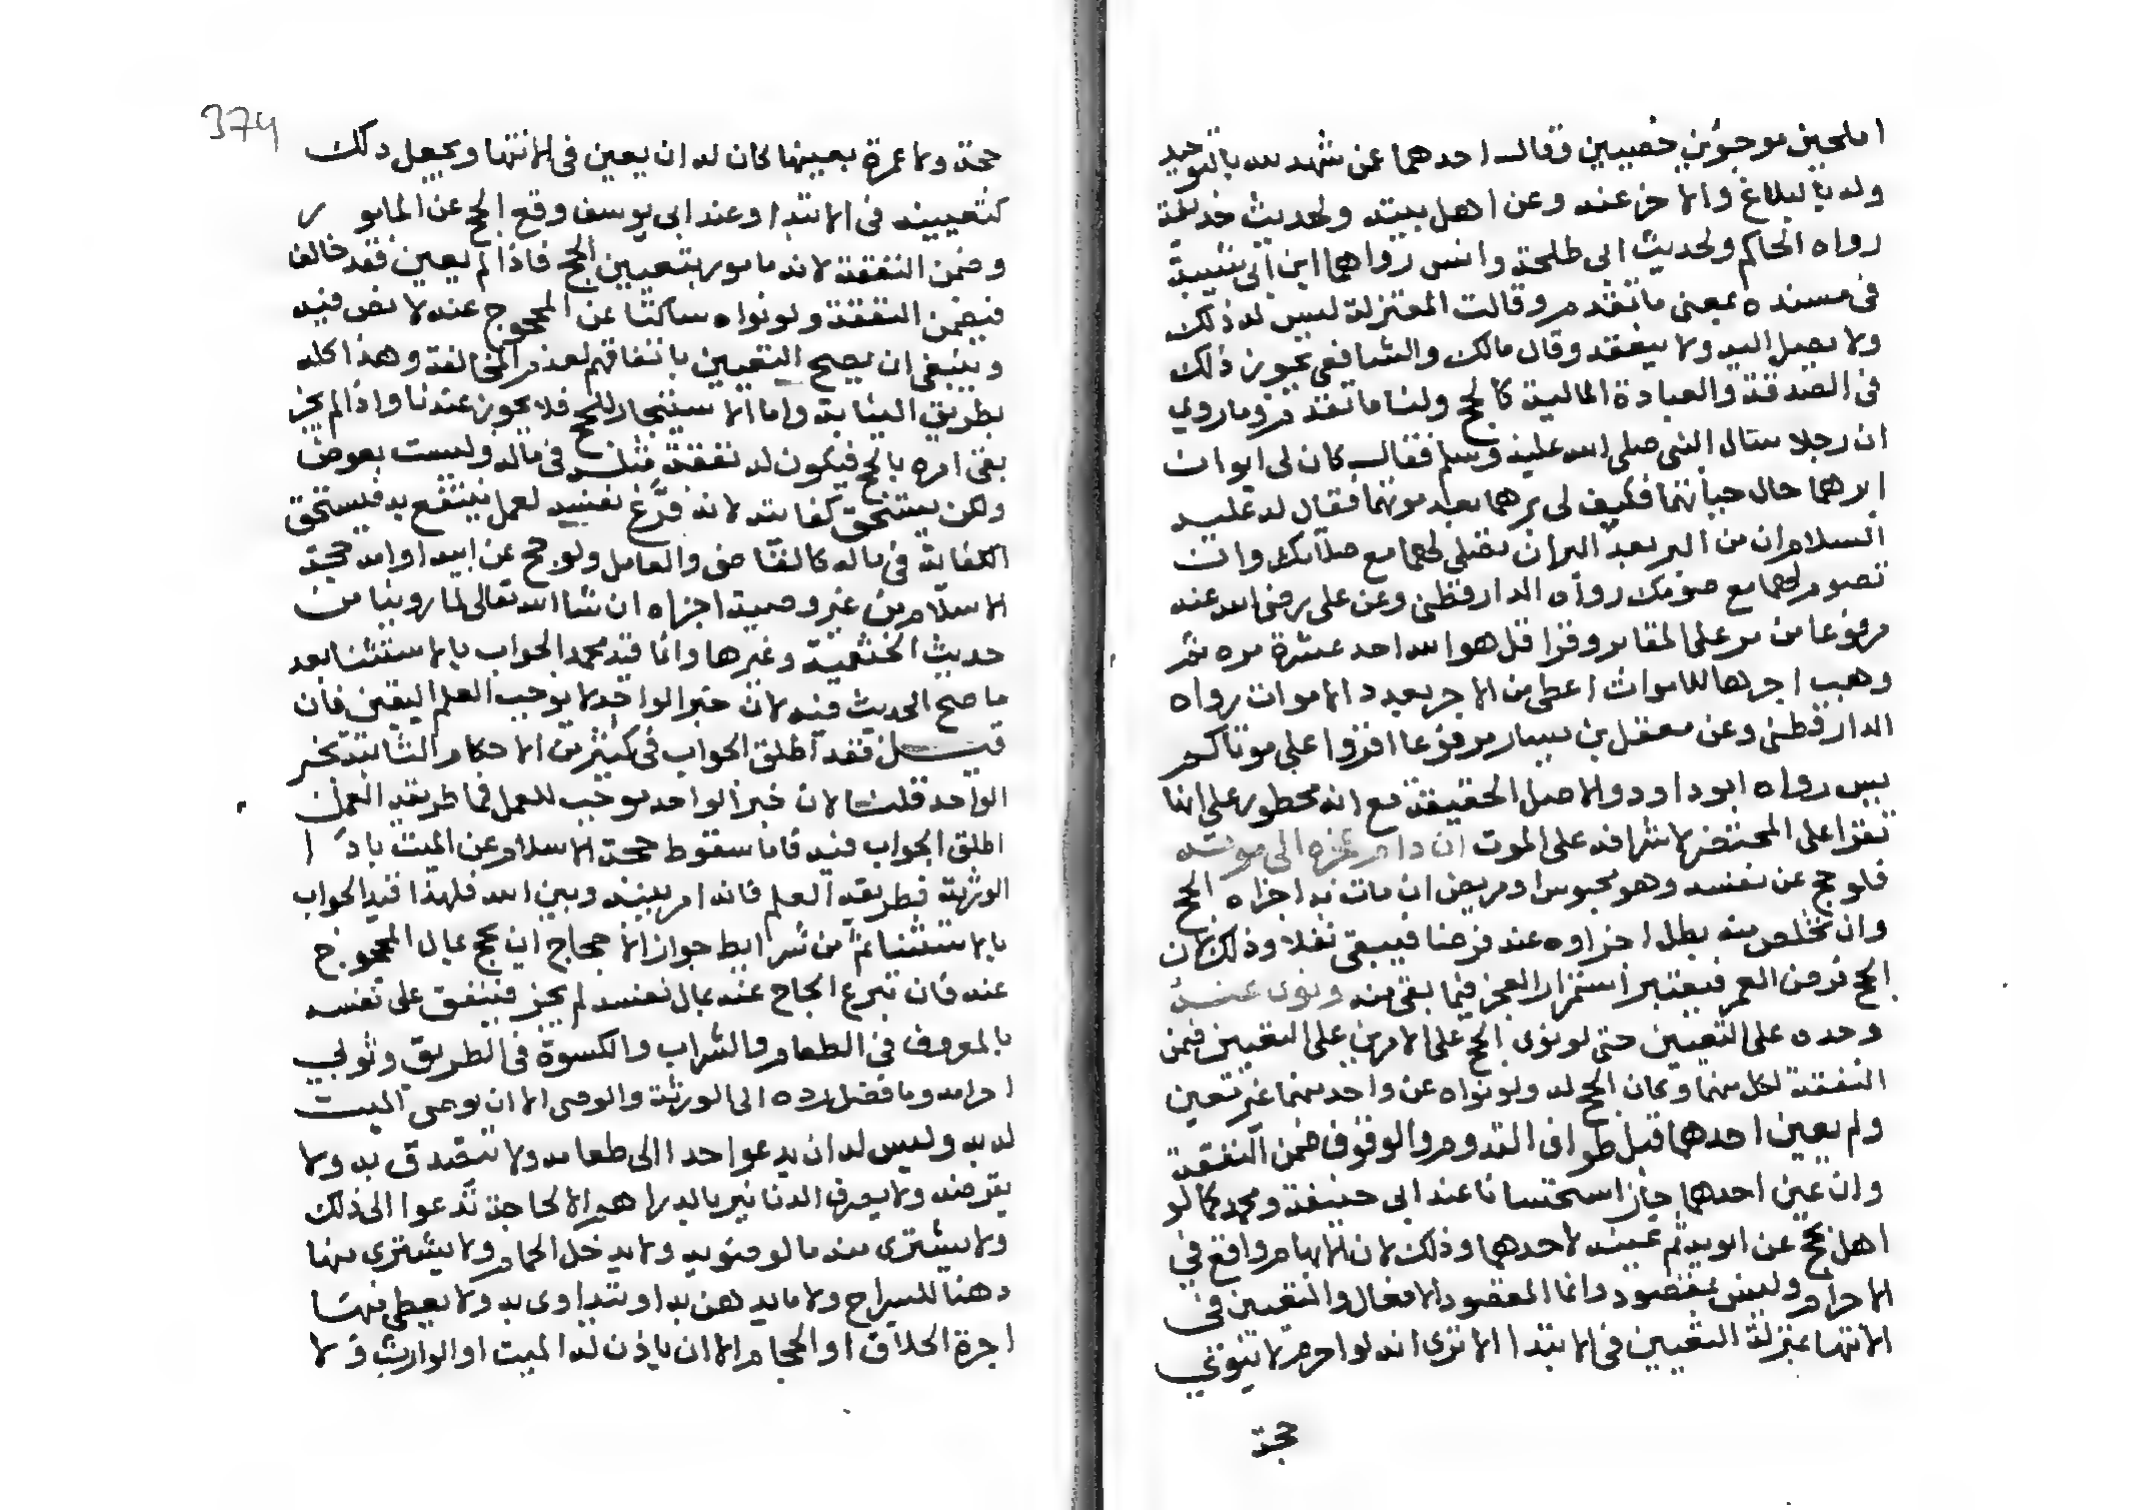 املحين موجوئين خصيين وقال احدهما عن شهد لله بالتوحيد
وله بالبلاغ والاخر عنه وعن اهل بيته ولحديث حذيفة
رواه الحاكم ولحديث ابى طلحة وانس رواهما ابن ابى شيبة
فى مسنده بمعنى ما تقدم وقالت المعتزلة ليس له ذلك
ولا يصل اليه ولا ينفعه وقال مالك والشافعى يجوز ذلك
فى الصدقة والعبادة المالية كالحج ولنا ما تقدم وما روي
ان رجلا سأل النبى صلى الله عليه وسلم فقال كان لى ابوان
ابرهما حال حياتهما فكيف لى ببرهما بعد موتهما فقال له عليه
السلام ان من البر بعد البر ان تصلى لهما مع صلاتك وان
تصوم لهما مع صومك رواه الدارقطنى وعن على رضى الله عنه
مرفوعا من مر على المقابر وقرا قل هو الله احد عشرة مره ثم
وهب اجرها للاموات اعطى من الاجر بعدد الاموات رواه
الدارقطنى وعن معقل بن يسار مرفوعا اقرؤا على موتاكم
يس رواه ابوداود والاصل الحقيقة مع انه محظور على انها
تقرا على المحتضر لاشرافه على الموت ان دام عجزه الى موته
فلو حج عن نفسه وهو محبوس او مريض ان مات به اجزاه الحج
وان تخلص منه بطل اجزاوه عنه فرضا فيبقى نفلا وذلك لان
الحج فرض العمر فيعتبر استمرار العجز فيما بقى منه ونوى عنه
وحده على التعيين حتى لو نوى الحج على الامرين على التعيين ضمن
النفقة لكل منهما وكان الحج له ولو نواه عن واحد منهما غير معين
ولم يعين احدهما قبل طواف القدوم والوقوف ضمن النفقة
وان عين احدهما جاز استحسانا عند ابى حنيفة ومحمد كما لو
اهل بحج عن ابويه ثم عينه لاحدهما وذلك لان الابهام واقع فى
الاحرام وليس بمقصود وانما المقصود الافعال والتعيين فى
الانتها بمنزلة التعيين فى الابتدا الا ترى انه لو احرم لا ينوى
حجة
374
حجة ولا عمرة بعينها كان له ان يعين فى الانتها ويجعل ذلك
كتعيينه فى الابتدا وعند ابى يوسف وقع الحج عن المامور
وضمن النفقة لانه مامور بتعيين الحج فاذا لم يعين فقد خالف
فيضمن النفقة ولو نواه ساكتا عن المحجوج عنه لا نص فيه
وينبغى ان يصح التعيين باتفاقهم لعدم المخالفة وهذا كله
بطريق النيابة واما الاستئجار للحج فلا يجوز عندنا واذا لم يجز
بقى امره بالحج فيكون له نفقة مثله فى ماله وليست بعوض
ولكن يستحق كفايته لانه فرغ نفسه لعمل ينتفع به فيستحق
الكفاية فى ماله كالقاضى والعامل ولو حج عن ابيه او امه حجة
الاسلام من غير وصية اجزاه ان شا الله تعالى لما روينا من
حديث الخثعمية وغيرها وانما قيد محمد الجواب بالاستثنا بعد
ما صح الحديث فيه لان خبر الواحد لا يوجب العلم اليقين فان
قيل فقد اطلق الجواب فى كثير من الاحكام الثابتة بخبر
الواحد قلنا لان خبر الواحد موجب للعمل فما طريقه العمل
اطلق الجواب فيه فاما سقوط حجة الاسلام عن الميت بادا
الورثة فطريقه العلم فانه امر بينه وبين الله فلهذا قيد الجواب
بالاستثنا ثم من شرايط جواز الاحجاج ان يحج بمال المحجوج
عنه فان تبرع الحاج عنه بمال نفسه لم يجز فينفق على نفسه
بالمعروف فى الطعام والشراب والكسوة فى الطريق وثوبي
احرامه وما فضل رده الى الورثة والوصى الا ان يوصى الميت
له به وليس له ان يدعو احدا الى طعامه ولا يتصدق به ولا
يقرضه ولا يصرف الدنانير بالدراهم الا لحاجة تدعوا الى ذلك
ولا يشترى منه ما لوضوئه ولا يدخل الحمام ولا يشترى منها
دهنا للسراج ولا ما يدهن به او يتداوى به ولا يعطى منها
اجرة الحلاق او الحجام الا ان ياذن له الميت او الوارث ولا